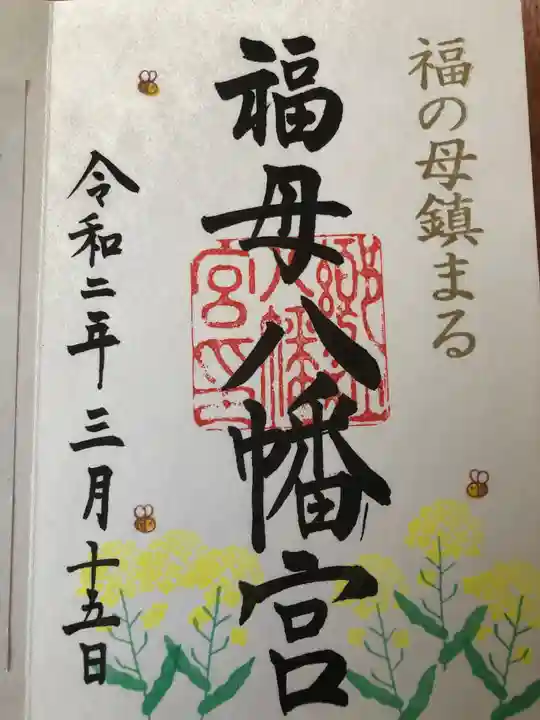 福の母鎮まる
福母八幡宮
郷社八幡宮印
令和二年三月十五日